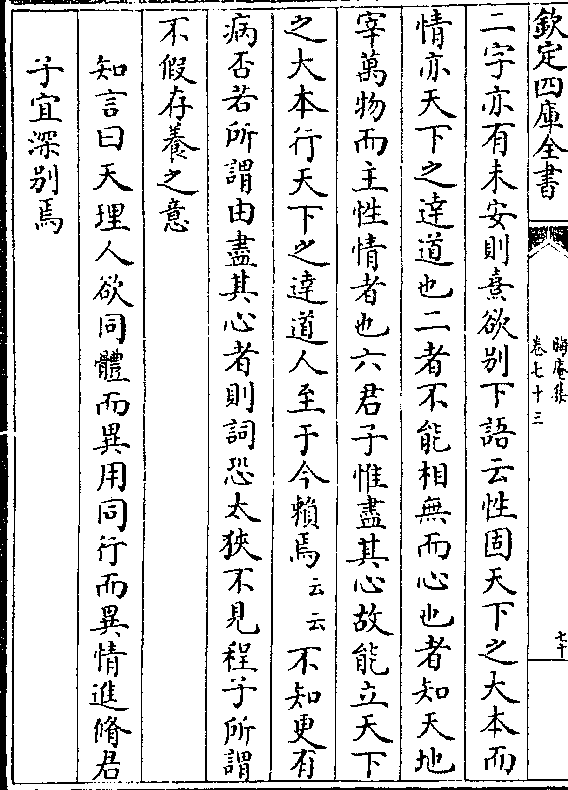 欽定四庫全書
晦庵集
卷七十三
七十
二字亦有未安則熹欲别下語云性固天下之大本而
情亦天下之達道也二者不能相無而心也者知天地
宰萬物而主性情者也六君子惟盡其心故能立天下
之大本行天下之達道人至于今賴焉云云不知更有
病否若所謂由盡其心者則詞恐太狹不見程子所謂
不假存養之意
知言曰天理人欲同體而異用同行而異情進脩君
子宜深别焉